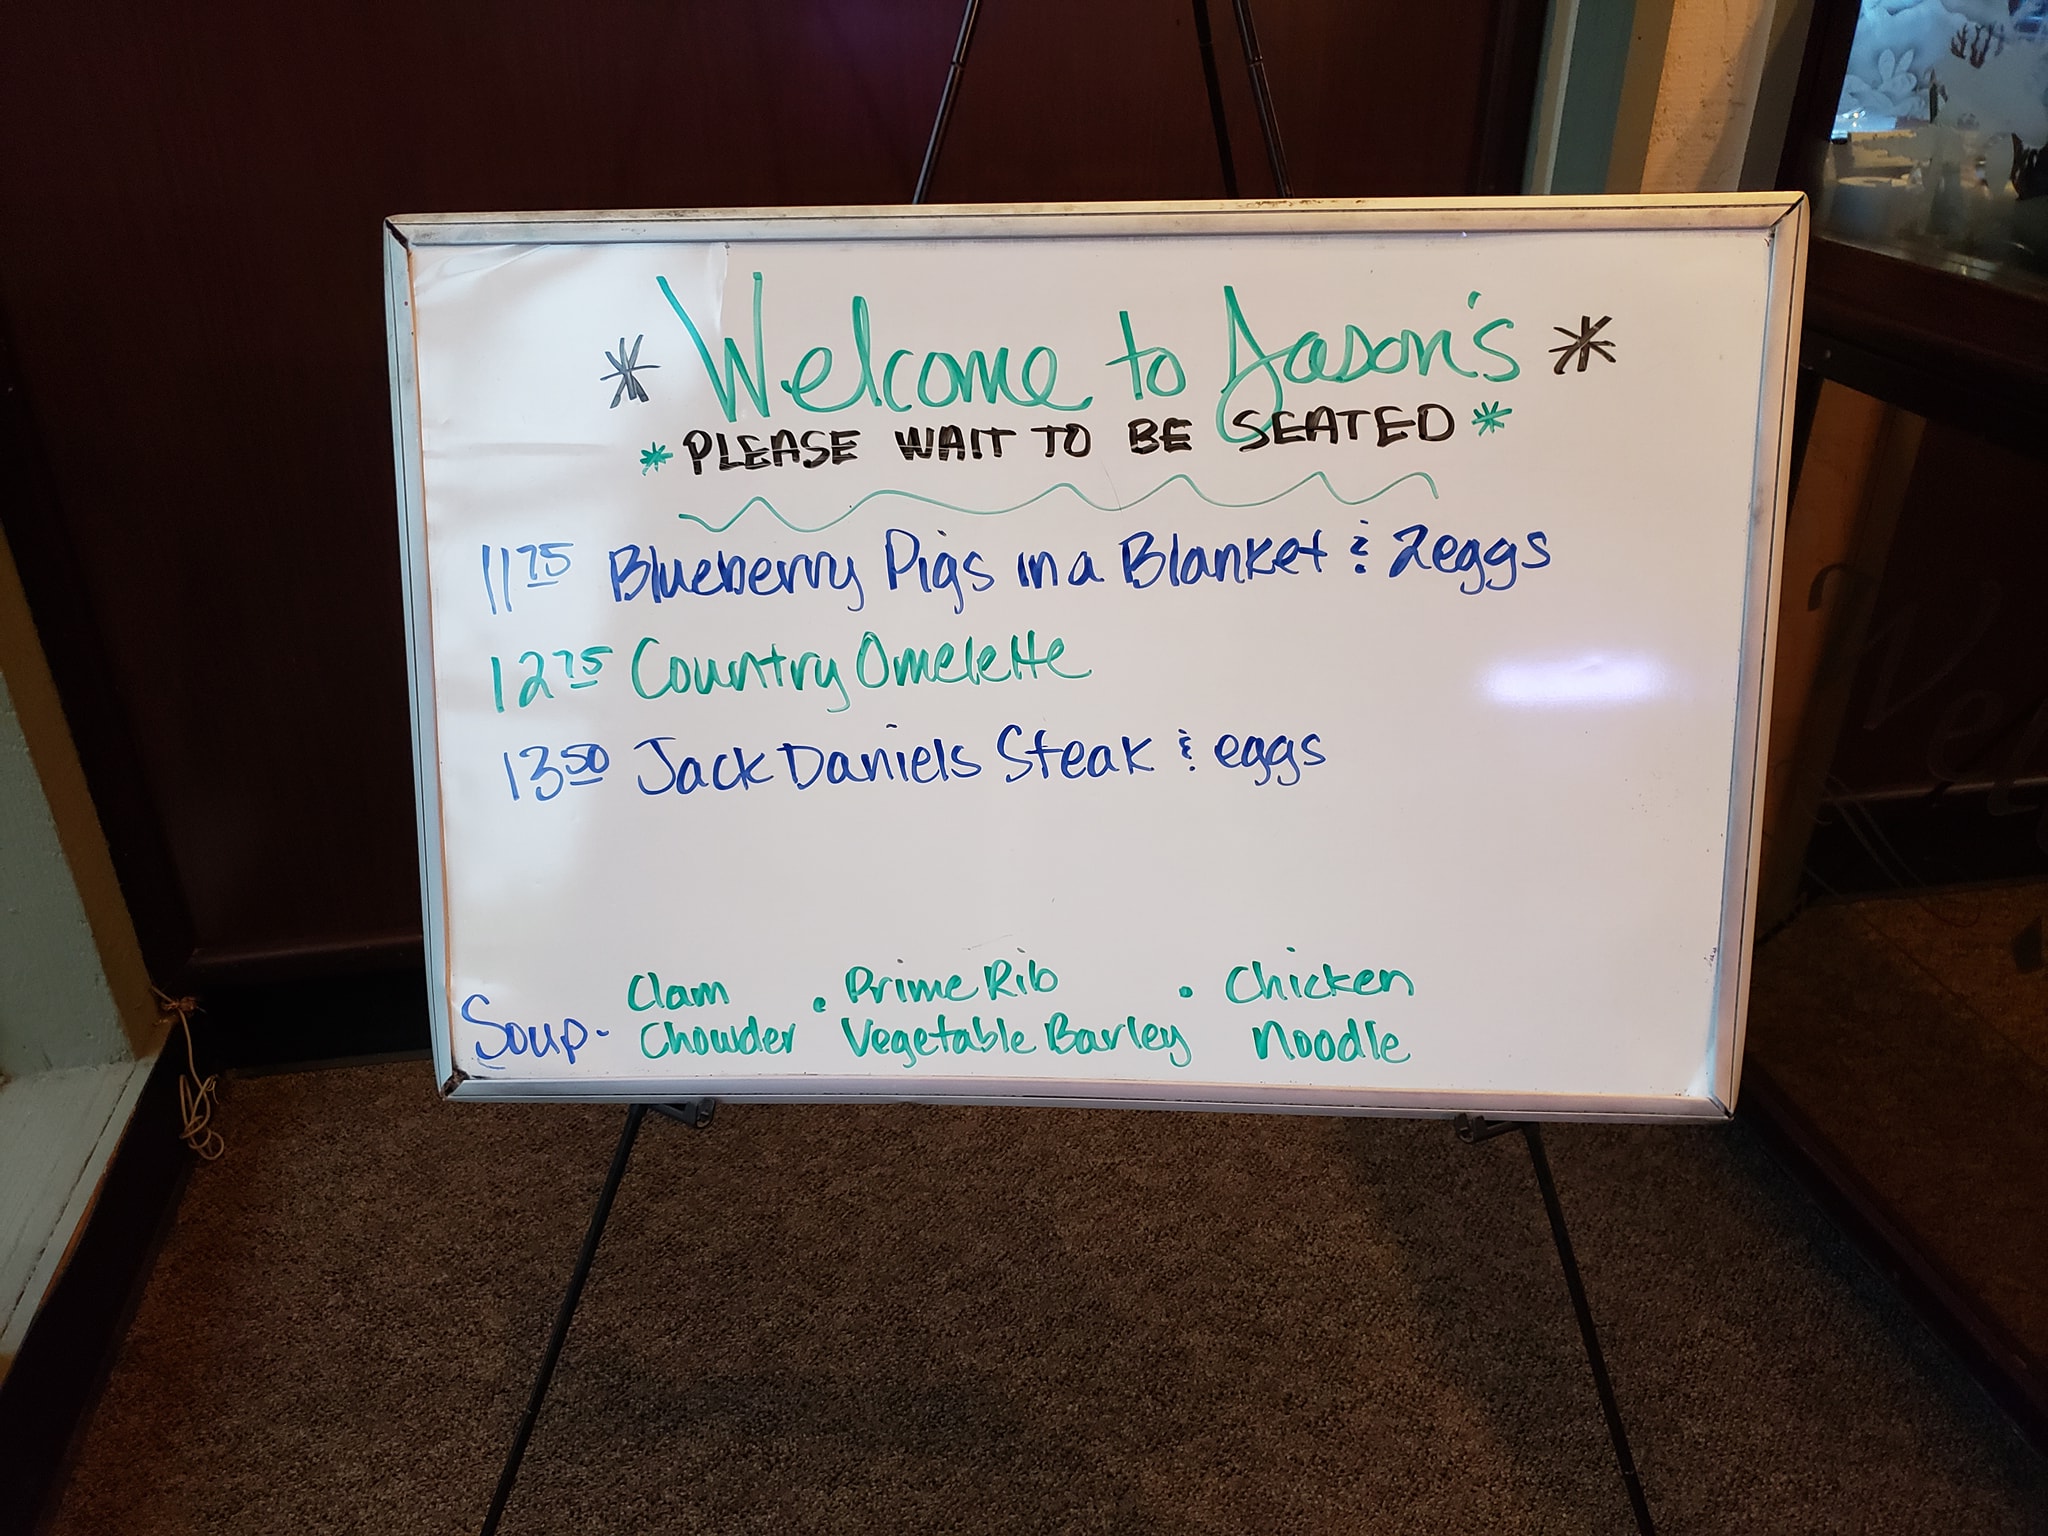 * Welcome to Jason's *
* PLEASE WAIT TO BE SEATED *
11 75 Blueberry Pigs in a Blanket & 2 eggs
12 75 Country Omelette
13 50 Jack Daniels Steak & eggs
Soup - Clam Chowder • Prime Rib Vegetable Barley • Chicken Noodle